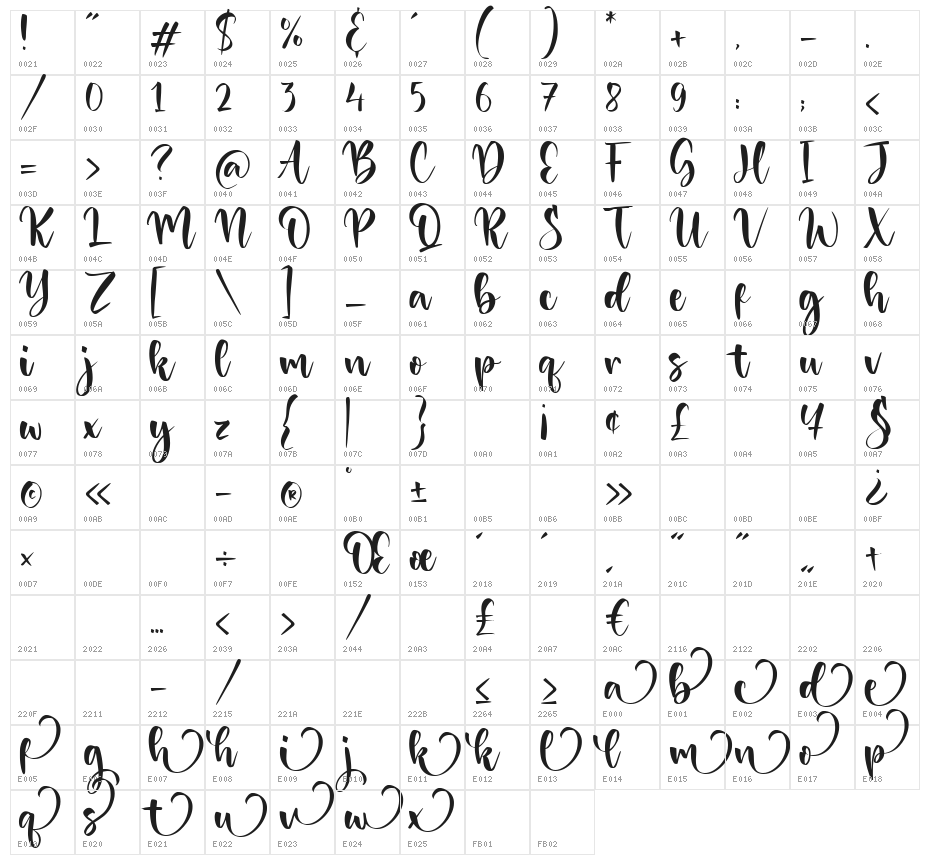 ! " # $ % & ' ( ) * + , - .
0021 0022 0023 0024 0025 0026 0027 0028 0029 002A 002B 002C 002D 002E
/ 0 1 2 3 4 5 6 7 8 9 : ; <
002F 0030 0031 0032 0033 0034 0035 0036 0037 0038 0039 003A 003B 003C
= > ? @ A B C D E F G H I J
003D 003E 003F 0040 0041 0042 0043 0044 0045 0046 0047 0048 0049 004A
K L M N O P Q R S T U V W X
004B 004C 004D 004E 004F 0050 0051 0052 0053 0054 0055 0056 0057 0058
Y Z [ \ ] _ a b c d e f g h
0059 005A 005B 005C 005D 005F 0061 0062 0063 0064 0065 0066 0067 0068
i j k l m n o p q r s t u v
0069 006A 006B 006C 006D 006E 006F 0070 0071 0072 0073 0074 0075 0076
w x y z { | } ¡ ¢ £ ¥ §
0077 0078 0079 007A 007B 007C 007D 00A0 00A1 00A2 00A3 00A4 00A5 00A7
© « - ® ° ± » ¿
00A9 00AB 00AC 00AD 00AE 00B0 00B1 00B5 00B6 00BB 00BC 00BD 00BE 00BF
× ÷ Œ œ ‘ ’ ‚ “ ” „ †
00D7 00DE 00F0 00F7 00FE 0152 0153 2018 2019 201A 201C 201D 201E 2020
… ‹ › ⁄ ₤ €
2021 2022 2026 2039 203A 2044 20A3 20A4 20A7 20AC 2116 2122 2202 2206
− ∕ ≤ ≥ a b c d e
220F 2211 2212 2215 221A 221E 222B 2264 2265 E000 E001 E002 E003 E004
f g h h i j k k l l m n o p
E005 E006 E007 E008 E009 E010 E011 E012 E013 E014 E015 E016 E017 E018
q s t u v w x
E019 E020 E021 E022 E023 E024 E025 FB01 FB02